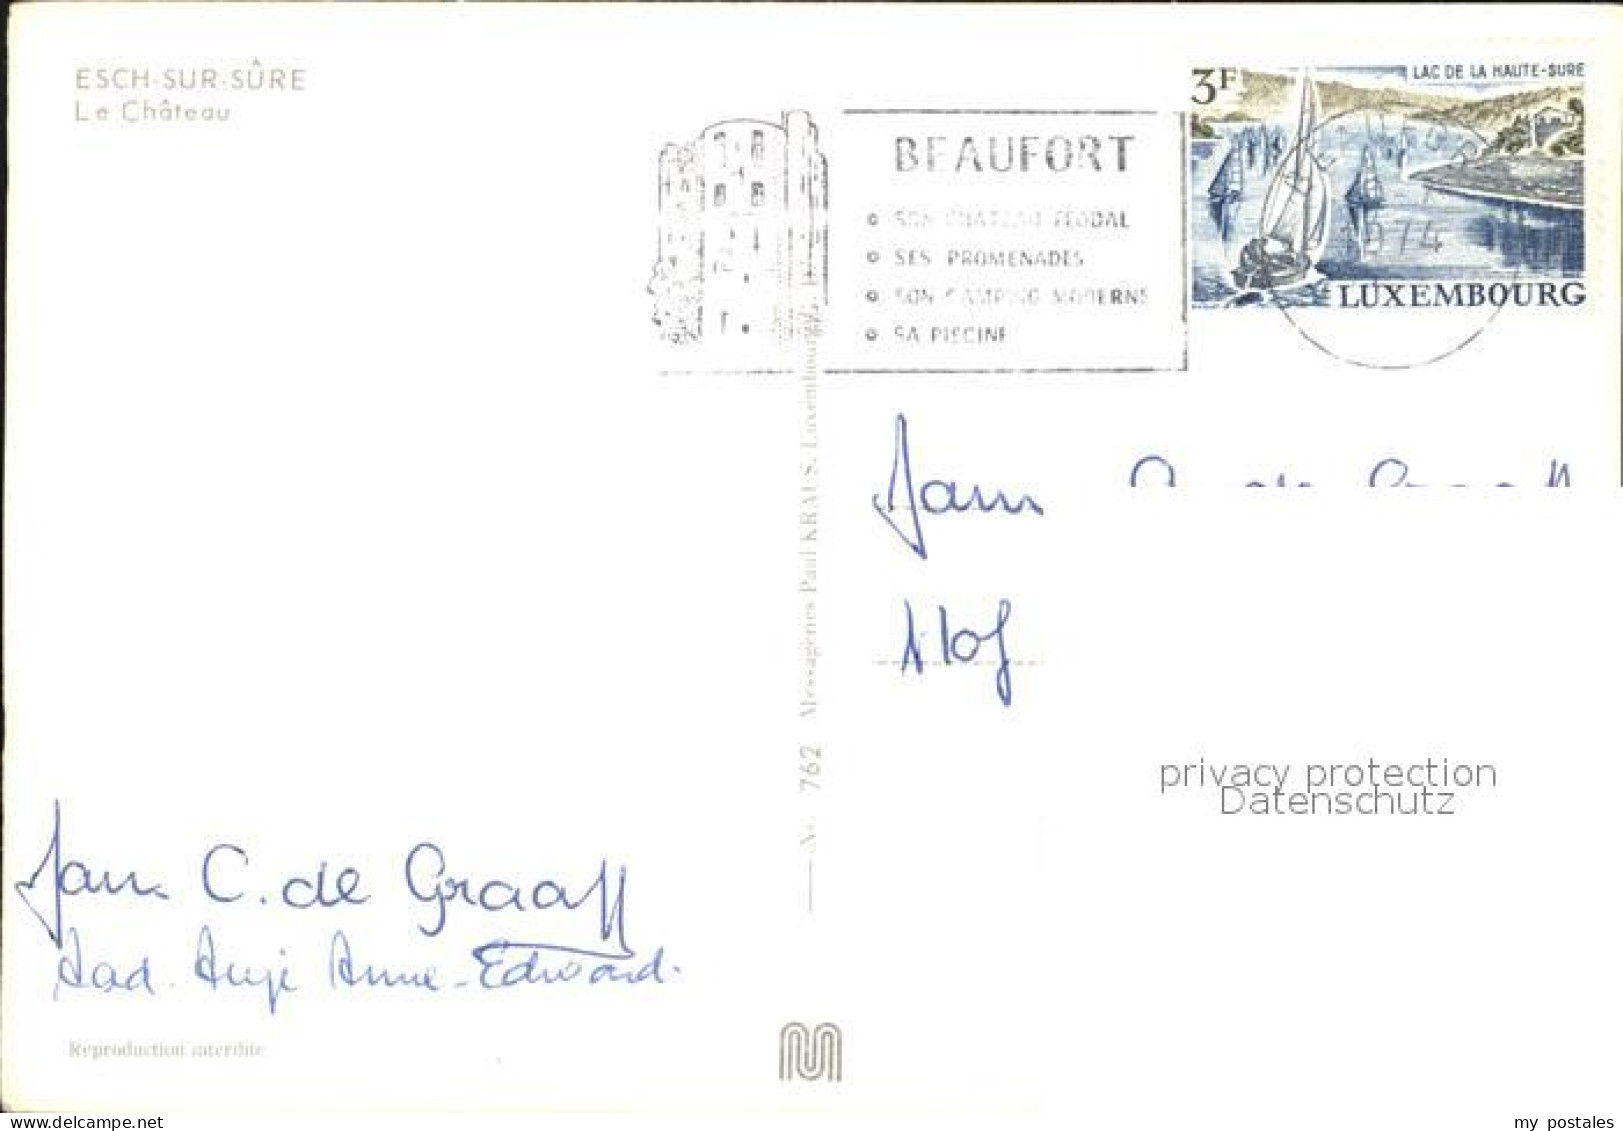 ESCH-SUR-SÛRE
Le Château
3F
LAC DE LA HAUTE-SURE
LUXEMBOURG
BEAUFORT
SON CHATEAU FEODAL
SES PROMENADES
SON CAMPING MODERNE
SA PISCINE
1974
Nr. 762 Messageries Paul KRAUS, Luxembourg
Jan C. de Graaff
privacy protection
Datenschutz
Jan C. de Graaff
Aad. Anne-Edward.
Reproduction interdite
delcampe.net
my_postales